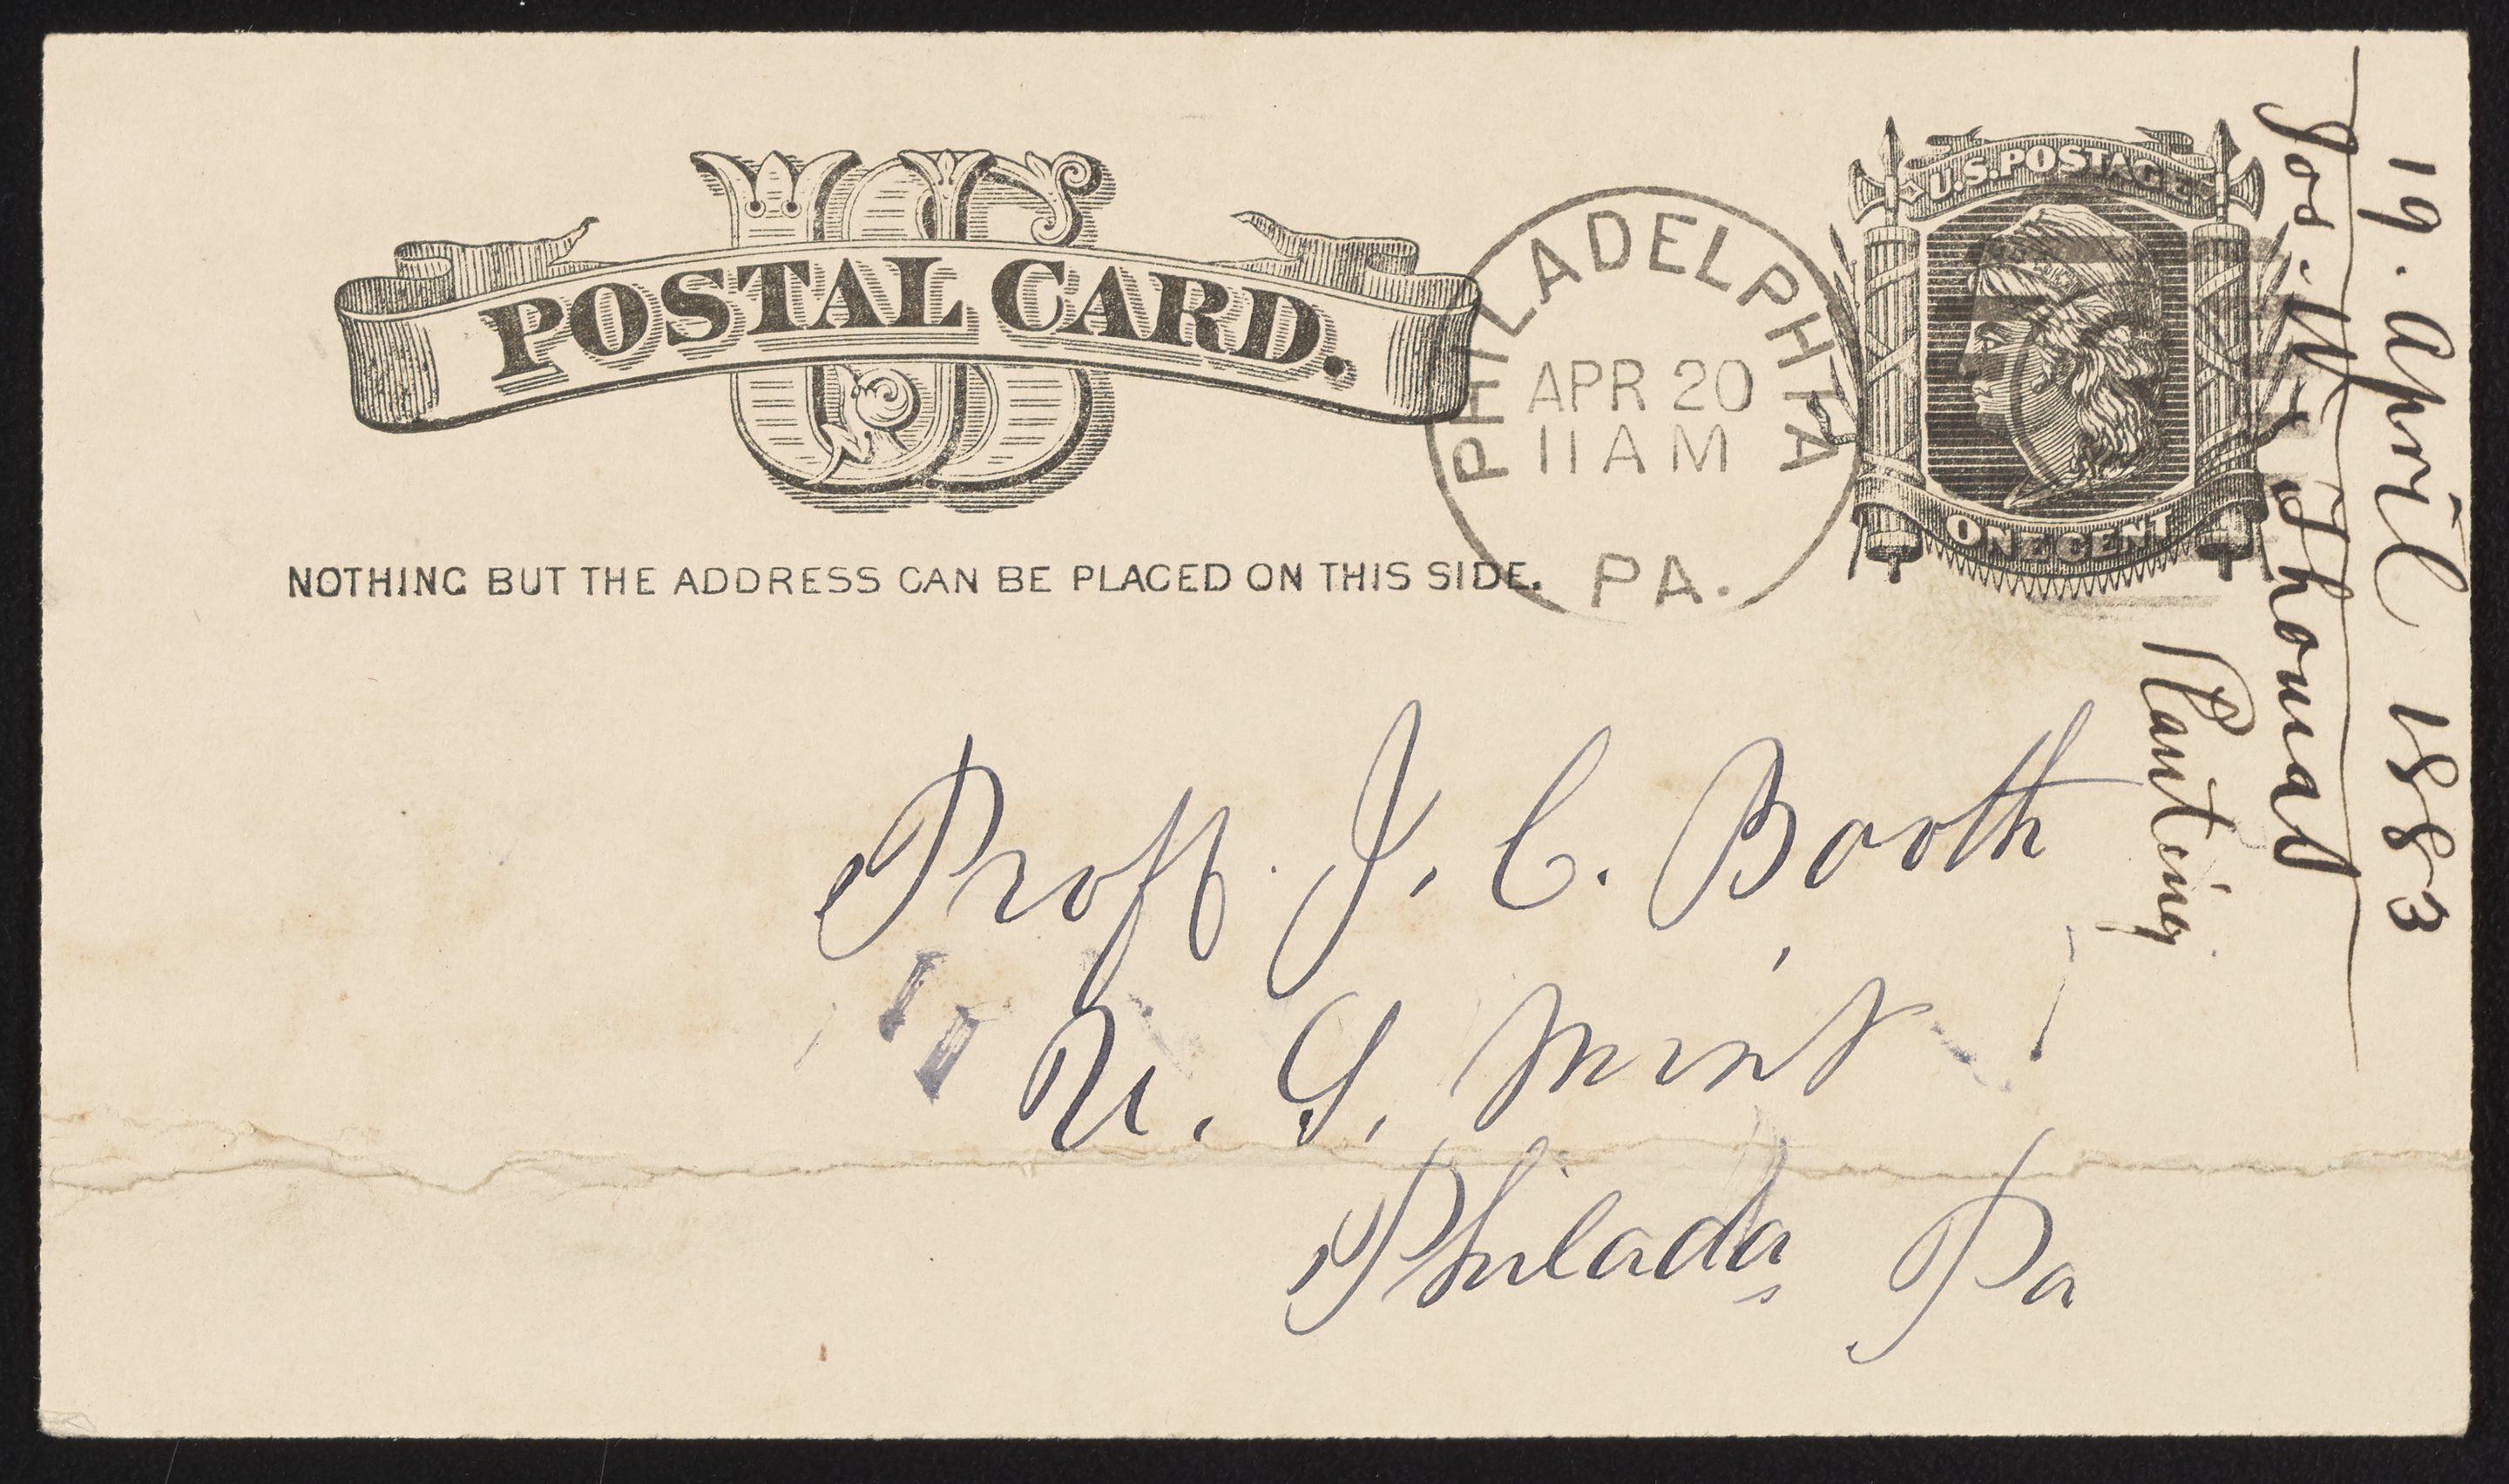 US
POSTAL CARD.
NOTHING BUT THE ADDRESS CAN BE PLACED ON THIS SIDE.
PHILADELPHIA
APR 20
11 AM
PA.
U.S. POSTAGE
ONE CENT
Proff. J. C. Booth
U. S. Mint
Philada Pa
19. April 1883
Jos. W. Thomas
Planting